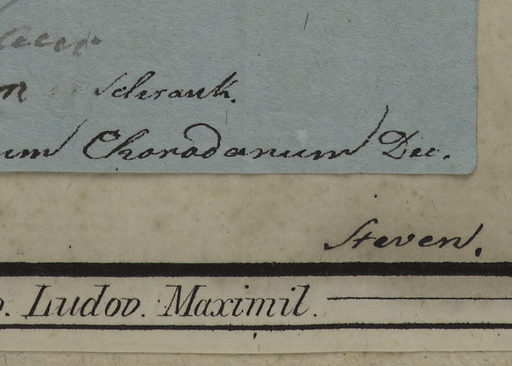 Schrank.
Chorodanum Dec.
Steven.
. Ludov. Maximil.